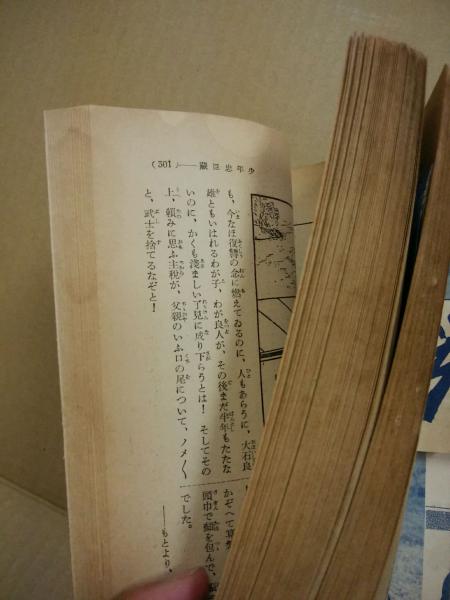 少年忠臣蔵――(301)
も、今なほ復讐の念に燃えてゐるのに、人もあらうに、大石良
雄ともいはれるわが子、わが良人が、その後まだ半年もたたな
いのに、かくも淺ましい了見に成り下らうとは！ そしてその
上、頼みに思ふ主税が、父親のいふ口の尾について、ノメ〳〵
と、武士を捨てるなぞと！
かぞへて算
頭巾で顔を包んで、
でした。
――もとより、